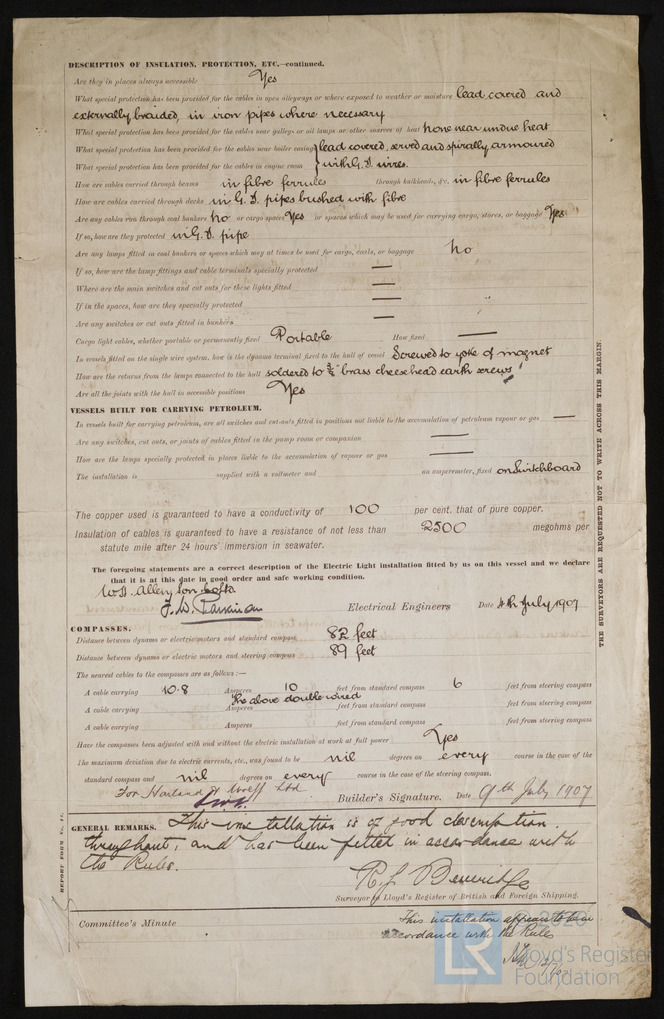 DESCRIPTION OF INSULATION, PROTECTION, ETC.—continued.
Are they in places always accessible Yes
What special protection has been provided for the cables in open alleyways or where exposed to weather or moisture lead covered and
externally braided, in iron pipes where necessary
What special protection has been provided for the cables near galleys or oil lamps or other sources of heat none near undue heat
What special protection has been provided for the cables near boiler casing lead covered, served and spirally armoured
What special protection has been provided for the cables in engine room with G. I. wires.
How are cables carried through beams in fibre ferrules through bulkheads, &c. in fibre ferrules
How are cables carried through decks in G. I. pipes bushed with fibre
Are any cables run through coal bunkers no or cargo spaces Yes or spaces which may be used for carrying cargo, stores, or baggage Yes
If so, how are they protected in G. I. pipe
Are any lamps fitted in coal bunkers or spaces which may at times be used for cargo, coals, or baggage no
If so, how are the lamp fittings and cable terminals specially protected —
Where are the main switches and cut outs for these lights fitted —
If in the spaces, how are they specially protected —
Are any switches or cut outs fitted in bunkers —
Cargo light cables, whether portable or permanently fixed Portable How fixed —
In vessels fitted on the single wire system, how is the dynamo terminal fixed to the hull of vessel Screwed to yoke of magnet
How are the returns from the lamps connected to the hull soldered to brass cheesehead earth screws
Are all the joints with the hull in accessible positions Yes
VESSELS BUILT FOR CARRYING PETROLEUM.
In vessels built for carrying petroleum, are all switches and cut-outs fitted in positions not liable to the accumulation of petroleum vapour or gas —
Are any switches, cut outs, or joints of cables fitted in the pump room or companion —
How are the lamps specially protected in places liable to the accumulation of vapour or gas —
The installation is supplied with a voltmeter and an amperemeter, fixed on Switchboard
The copper used is guaranteed to have a conductivity of 100 per cent. that of pure copper.
Insulation of cables is guaranteed to have a resistance of not less than 2500 megohms per
statute mile after 24 hours' immersion in seawater.
The foregoing statements are a correct description of the Electric Light installation fitted by us on this vessel and we declare
that it is at this date in good order and safe working condition.
W. H. Allen Son & Co Ltd
Electrical Engineers Date 4th July 1907
COMPASSES.
Distance between dynamo or electric motors and standard compass 82 feet
Distance between dynamo or electric motors and steering compass 89 feet
The nearest cables to the compasses are as follows:—
A cable carrying 10.8 Amperes 10 feet from standard compass 6 feet from steering compass
the above double wired
A cable carrying Amperes feet from standard compass feet from steering compass
A cable carrying Amperes feet from standard compass feet from steering compass
Have the compasses been adjusted with and without the electric installation at work at full power Yes
The maximum deviation due to electric currents, etc., was found to be nil degrees on every course in the case of the
standard compass and nil degrees on every course in the case of the steering compass.
For Harland & Wolff Ltd
Builder's Signature. Date 9th July 1907
GENERAL REMARKS. This installation is of good description
throughout, and has been fitted in accordance with
the Rules.
R. J. Beveridge
Surveyor to Lloyd's Register of British and Foreign Shipping.
Committee's Minute
This installation appears to be in
accordance with the Rules
REPORT FORM No. 11.
THE SURVEYORS ARE REQUESTED NOT TO WRITE ACROSS THIS MARGIN.
© 2020
LR
Lloyd's Register
Foundation